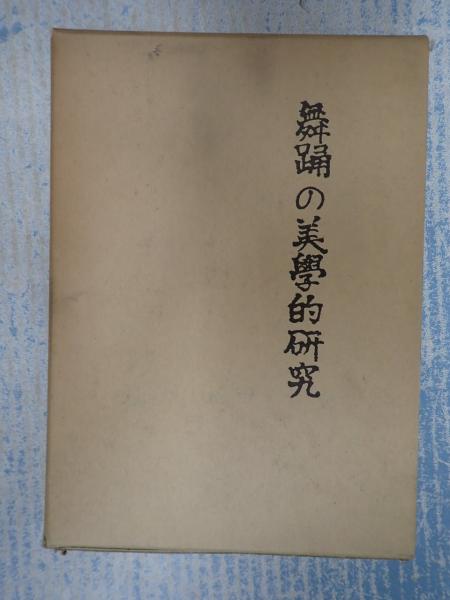 舞踊の美學的研究